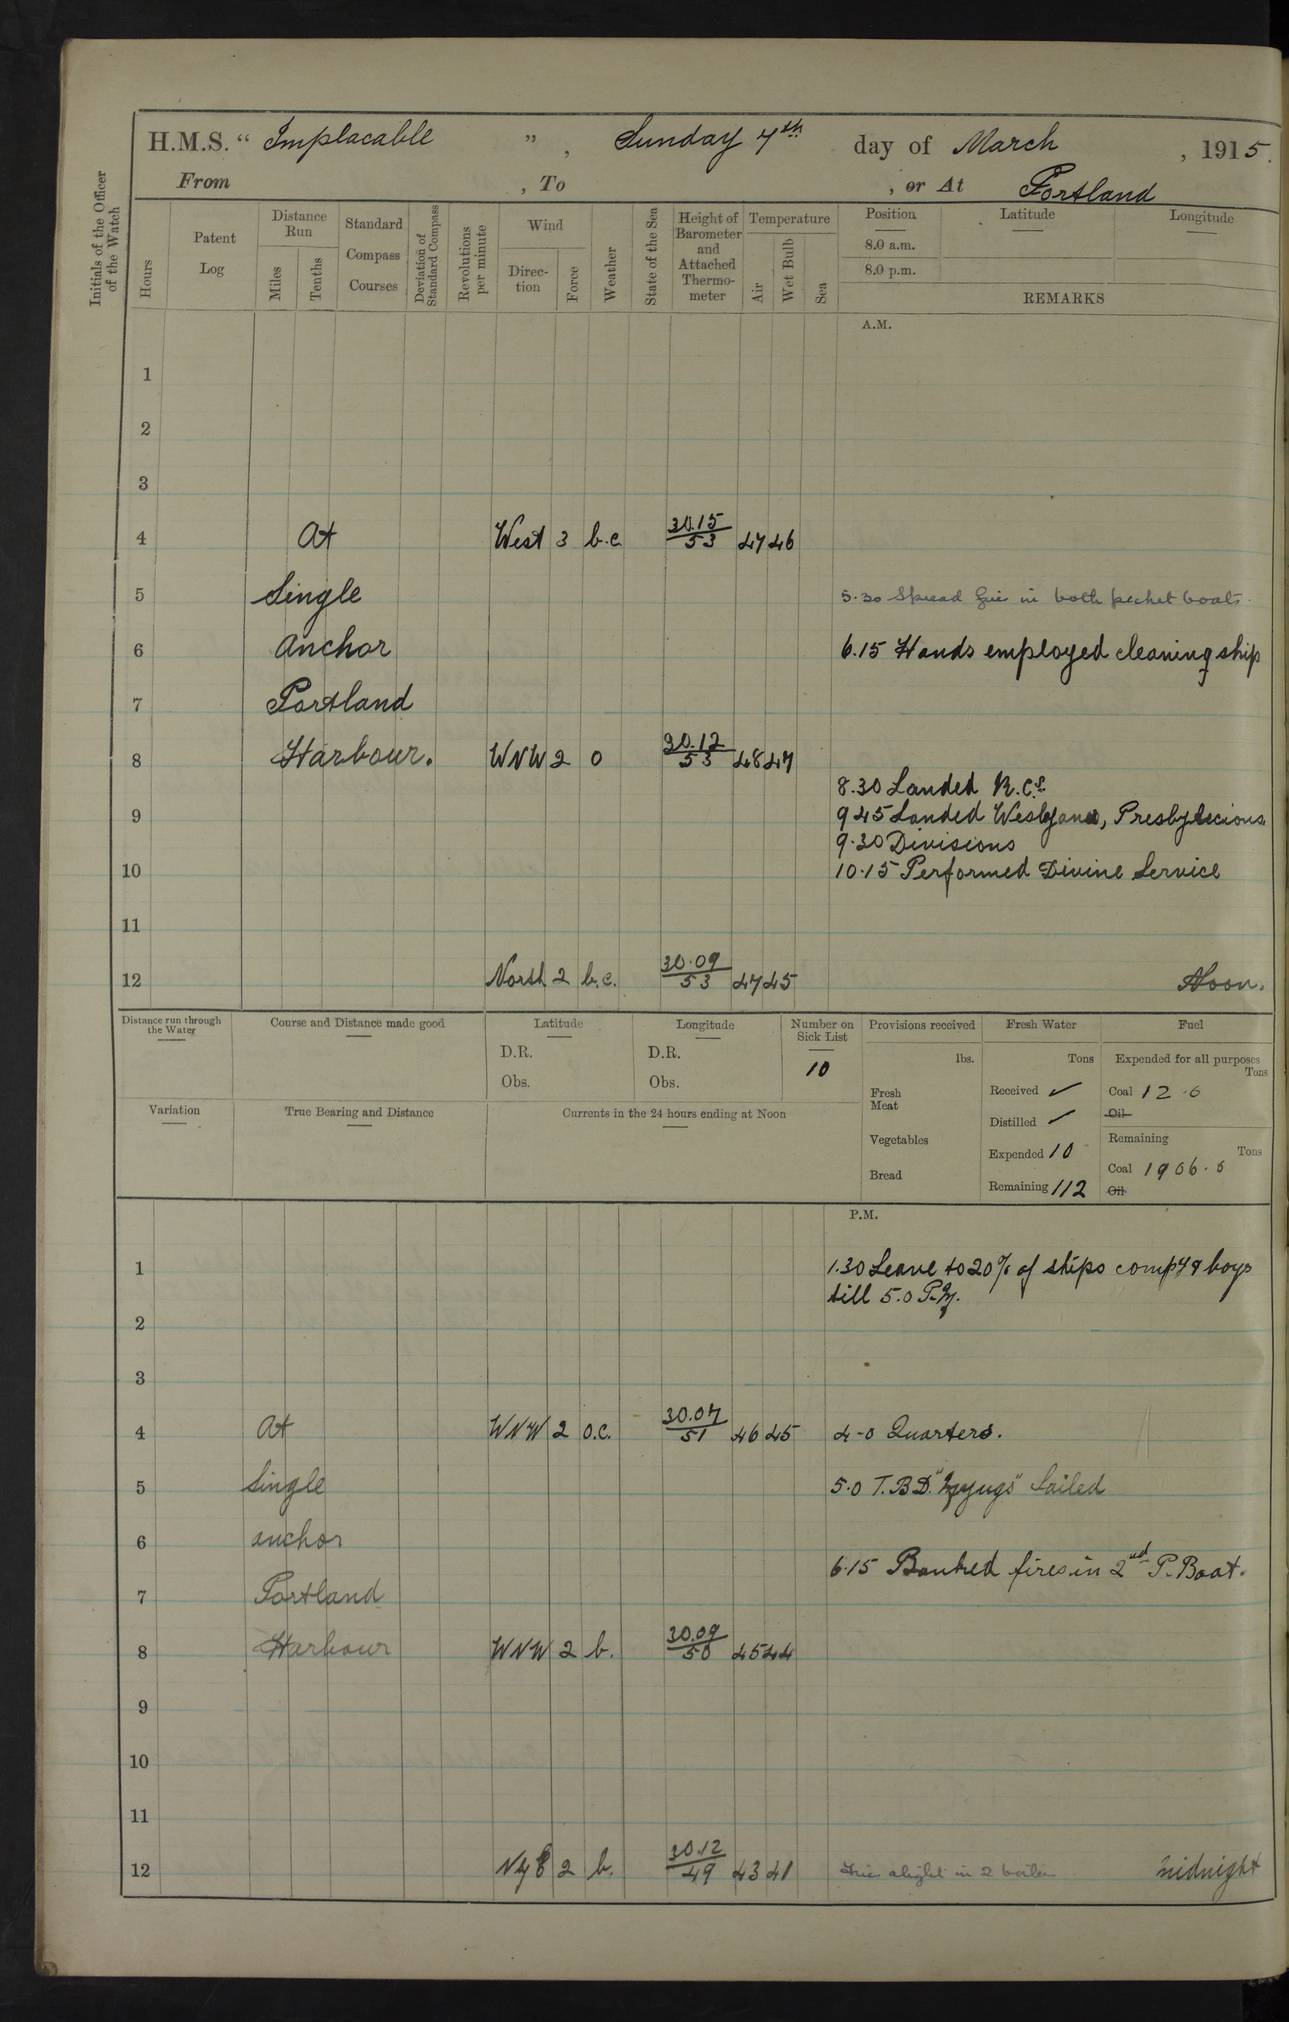 H.M.S. “ Implacable ” , Sunday 7th day of March , 1915.
From , To , or At Portland
Initials of the Officer of the Watch
Hours
Patent Log
Distance Run
Miles
Tenths
Standard Compass Courses
Deviation of Standard Compass
Revolutions per minute
Wind
Direc-tion
Force
Weather
State of the Sea
Height of Barometer and Attached Thermo-meter
Temperature
Air
Wet Bulb
Sea
Position Latitude Longitude
8.0 a.m.
8.0 p.m.
REMARKS
A.M.
1
2
3
4 At West 3 b.c. 30.15/53 47 46
5 Single 5.30 Spread fire in both picket boats.
6 Anchor 6.15 Hands employed cleaning ship
7 Portland
8 Harbour. WNW 2 O 30.12/53 48 47
8.30 Landed R.C.s
9 9 45 Landed Wesleyans, Presbyterians
9.30 Divisions
10 10.15 Performed Divine Service
11
12 North 2 b.c. 30.09/53 47 45 Noon.
Distance run through the Water
Course and Distance made good
Latitude
D.R.
Obs.
Longitude
D.R.
Obs.
Number on Sick List
10
Provisions received
lbs.
Fresh Meat
Vegetables
Bread
Fresh Water
Tons
Received ✓
Distilled ✓
Expended 10
Remaining 112
Fuel
Expended for all purposes
Tons
Coal 12.0
Oil
Remaining
Tons
Coal 1906.0
Oil
Variation
True Bearing and Distance
Currents in the 24 hours ending at Noon
P.M.
1 1.30 Leave to 20% of ships compy & boys
till 5.0 P.M.
2
3
4 At WNW 2 O.C. 30.07/51 46 45 4-0 Quarters.
5 Single 5.0 T.B.D. Sailed
6 anchor
6.15 Banked fires in 2nd P. Boat.
7 Portland
8 Harbour WNW 2 b. 30.09/50 45 44
9
10
11
12 2 b. 30.12/49 43 41 Fire alight in 2 boiler midnight